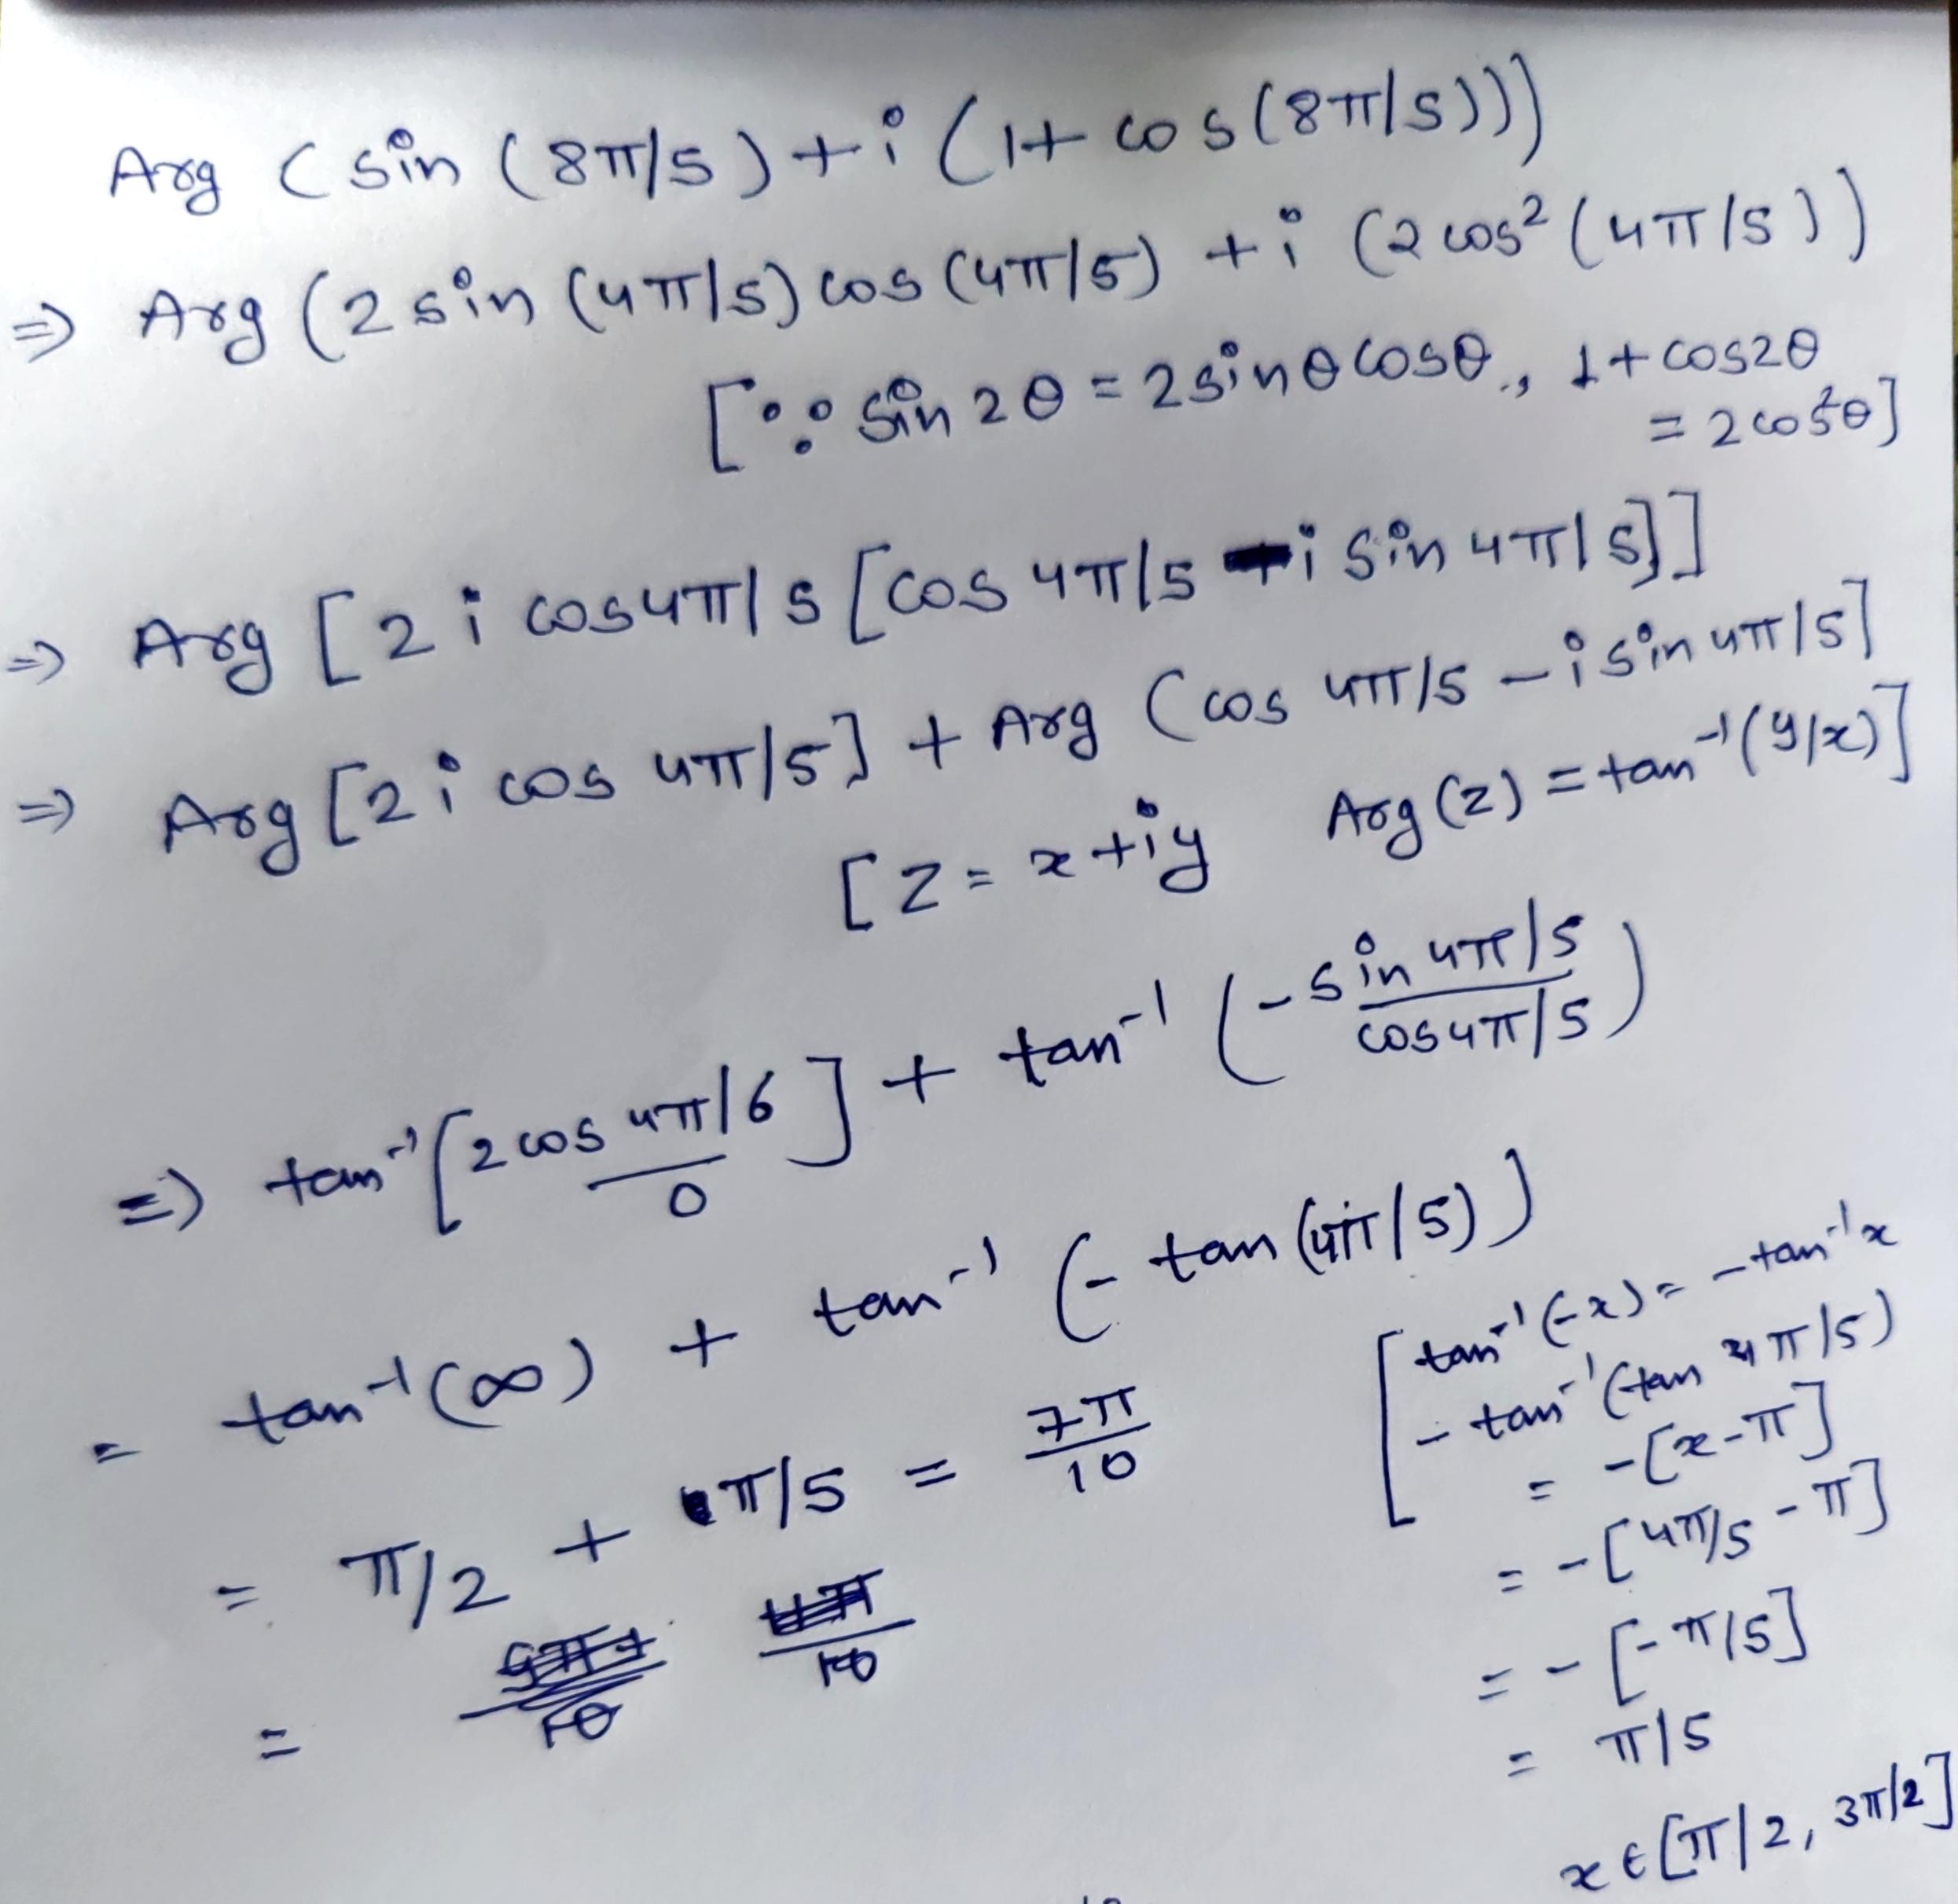 Arg (sin (8π/5) + i (1 + cos(8π/5)))
⇒ Arg (2 sin (4π/5) cos (4π/5) + i (2 cos² (4π/5))
[∵ sin 2θ = 2 sin θ cos θ, 1 + cos2θ
= 2 cos²θ]
⇒ Arg [2 i cos 4π/5 [cos 4π/5 - i sin 4π/5]]
⇒ Arg [2 i cos 4π/5] + Arg (cos 4π/5 - i sin 4π/5]
[z = x + iy Arg (z) = tan⁻¹ (y/x)]
⇒ tan⁻¹ [2 cos 4π/6 / 0] + tan⁻¹ (- sin 4π/5 / cos 4π/5)
= tan⁻¹ (∞) + tan⁻¹ (- tan (4π/5))
= π/2 + π/5 = 7π/10
=
[tan⁻¹ (-x) = - tan⁻¹ x
- tan⁻¹ (tan 4π/5)
= - [x - π]
= - [4π/5 - π]
= - [-π/5]
= π/5
x ∈ [π/2, 3π/2]